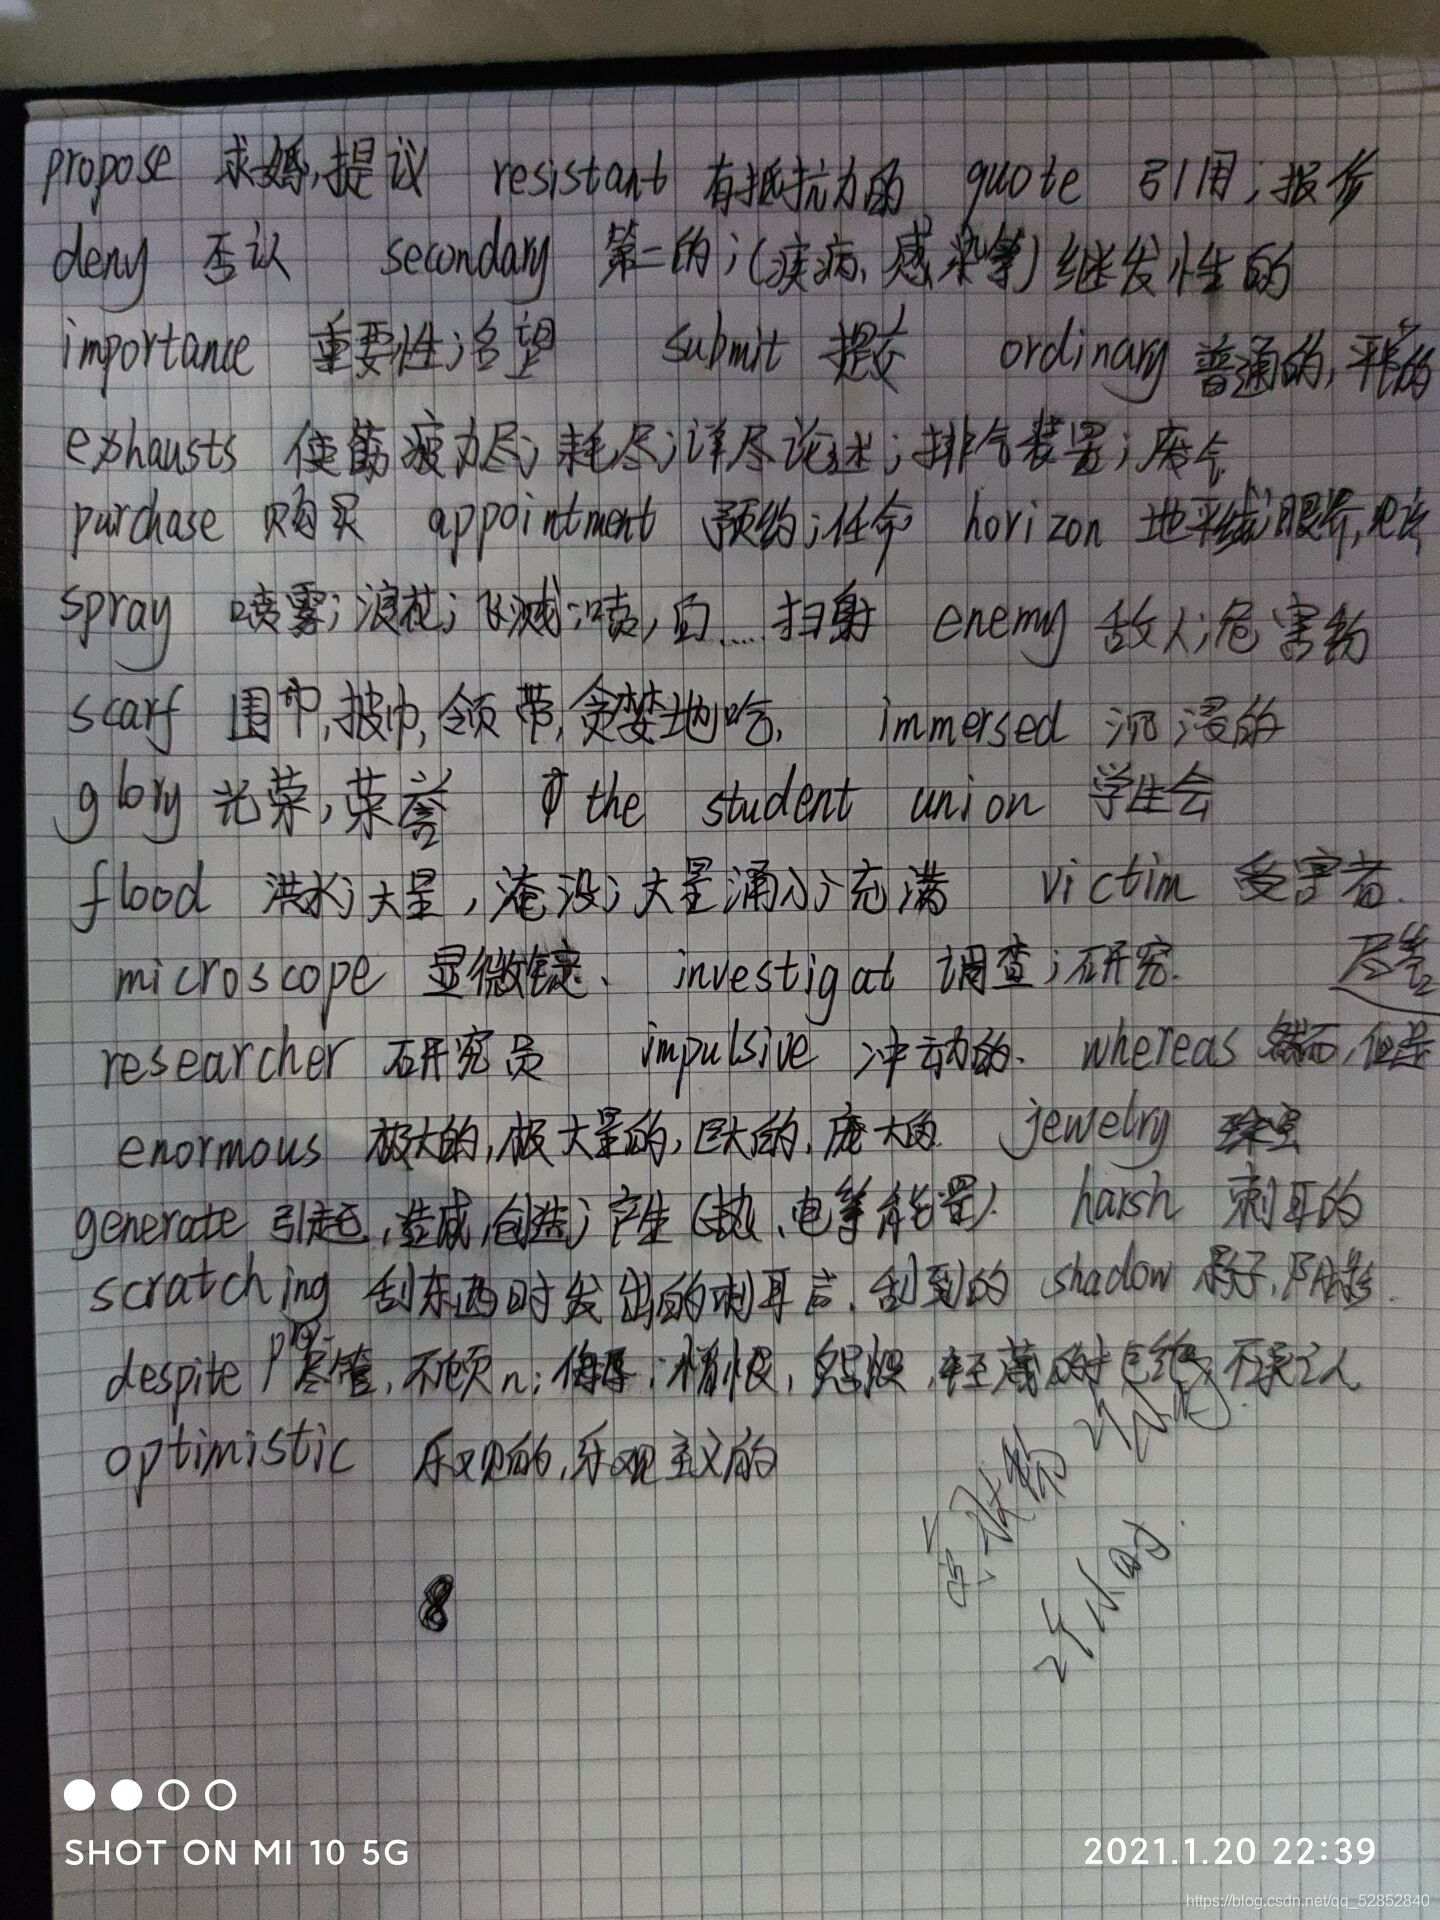 propose 求婚,提议 resistant 有抵抗力的 quote 引用;报价
deny 否认 secondary 第二的;(疾病、感染等)继发性的
importance 重要性;名望 submit 提交 ordinary 普通的,平常的
exhausts 使筋疲力尽;耗尽;详尽论述;排气装置;废气
purchase 购买 appointment 预约;任命 horizon 地平线;眼界,见识
spray 喷雾;浪花;飞溅;喷,向……扫射 enemy 敌人;危害物
scarf 围巾,披巾,领带,贪婪地吃, immersed 沉浸的
glory 光荣,荣誉 the student union 学生会
flood 洪水;大量,淹没;大量涌入;充满 victim 受害者.
microscope 显微镜、 investigat 调查;研究. 尽管
researcher 研究员 impulsive 冲动的. whereas 然而,但是
enormous 极大的,极大量的,巨大的,庞大的. jewelry 珠宝
generate 引起,造成,创造;产生(热、电等能量) harsh 刺耳的
scratching 刮东西时发出的刺耳声,刮到的 shadow 影子,阴影.
despite 尽管,不顾 n:侮辱;憎恨,怨恨,轻蔑的拒绝,不承认
optimistic 乐观的,乐观主义的
8
SHOT ON MI 10 5G
2021.1.20 22:39
https://blog.csdn.net/qq_52852840